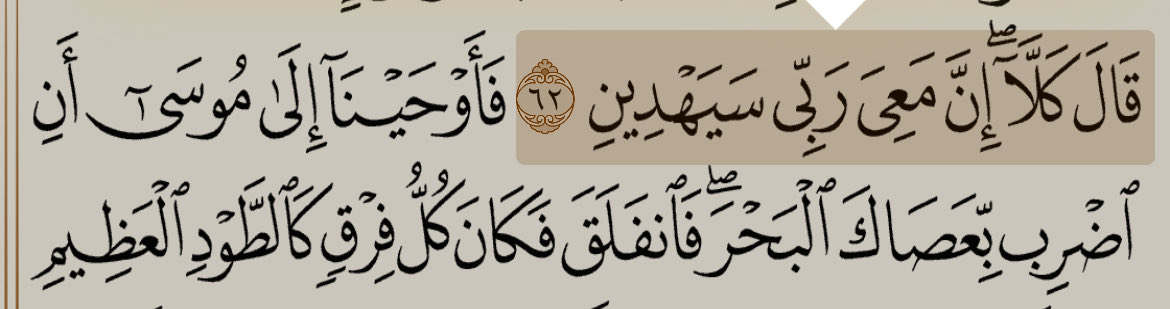 قَالَ كَلَّآۖ إِنَّ مَعِىَ رَبِّى سَيَهْدِينِ ٦٢ فَأَوْحَيْنَآ إِلَىٰ مُوسَىٰٓ أَنِ
ٱضْرِب بِّعَصَاكَ ٱلْبَحْرَۖ فَٱنفَلَقَ فَكَانَ كُلُّ فِرْقٍ كَٱلطَّوْدِ ٱلْعَظِيمِ